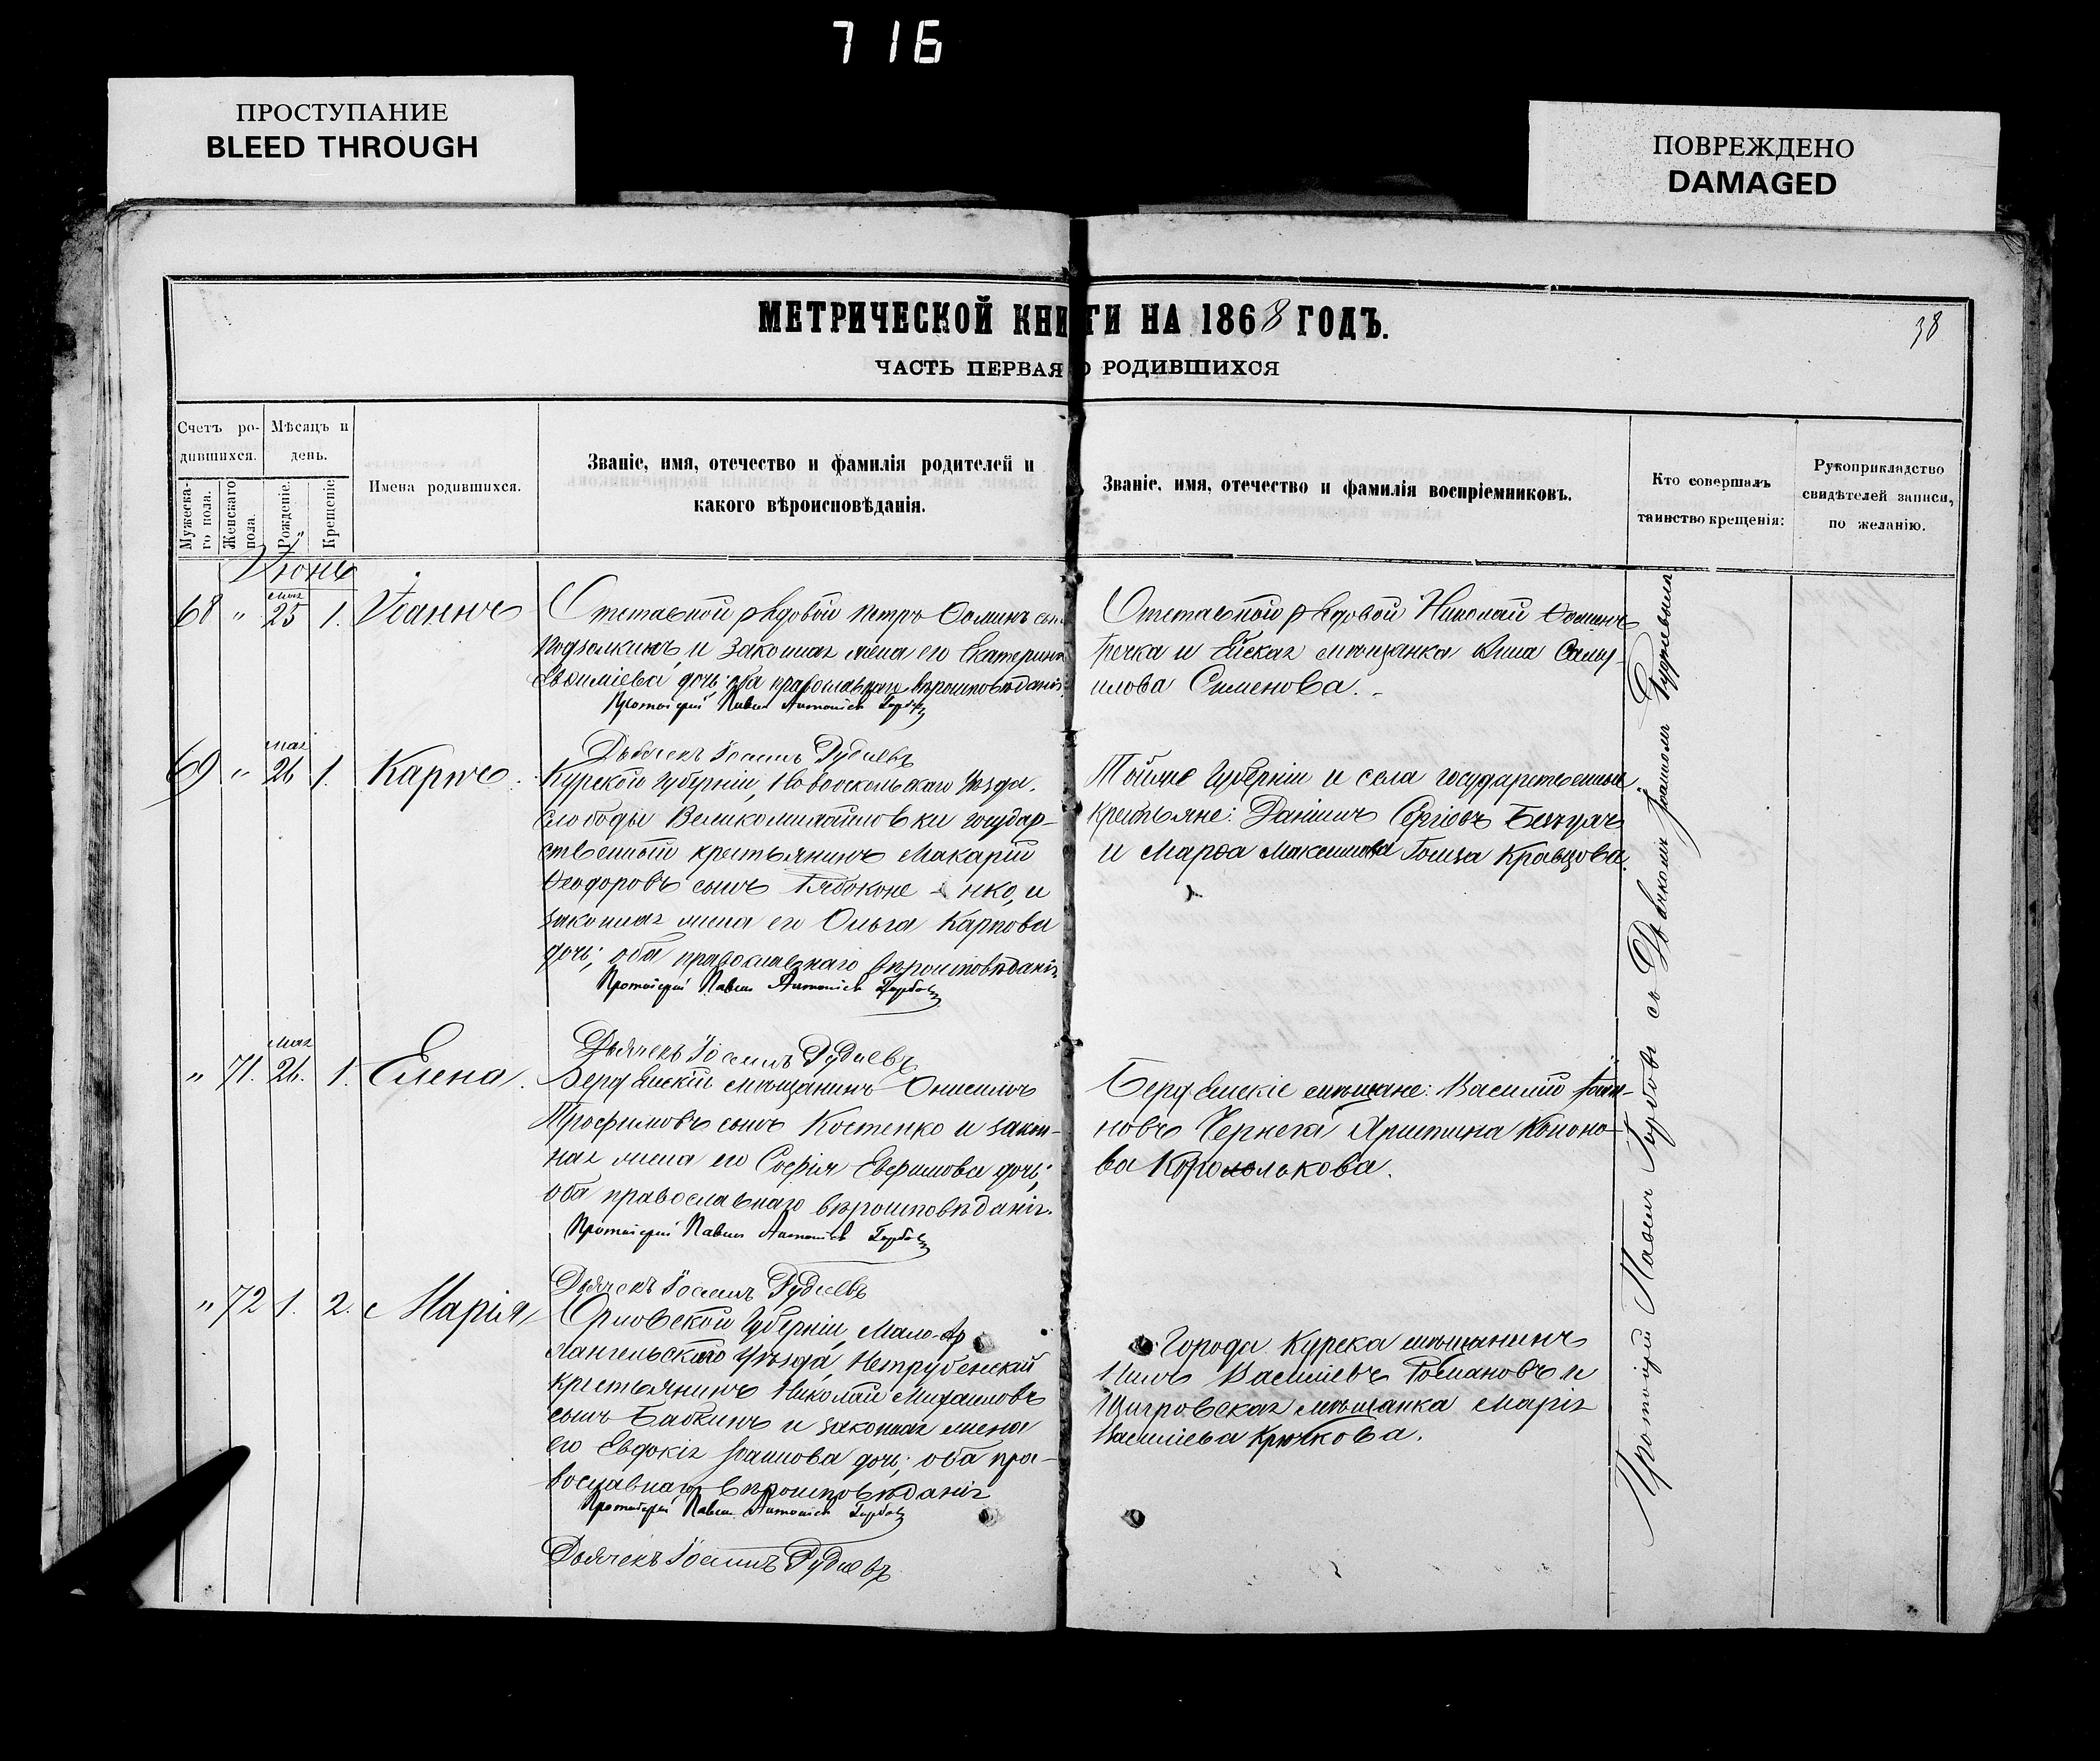 716
ПРОСТУПАНИЕ
BLEED THROUGH
ПОВРЕЖДЕНО
DAMAGED
МЕТРИЧЕСКОЙ КНИГИ НА 1868 ГОДЪ.
38
ЧАСТЬ ПЕРВАЯ О РОДИВШИХСЯ
Счетъ ро-
дившихся.
Мужеска-
го пола.
Женскаго
пола.
Мѣсяцъ и
день.
Рожденіе.
Крещеніе.
Имена родившихся.
Званіе, имя, отечество и фамилія родителей и
какого вѣроисповѣданія.
Званіе, имя, отечество и фамилія воспріемниковъ.
Кто совершалъ
таинство крещенія:
Рукоприкладство
свидѣтелей записи,
по желанію.
Июнь
68 " мая 25 1. Іоаннъ
Отставной рядовой Петръ Ѳоминъ сынъ
и законная жена его Екатерина
Евѳиміева дочь; оба православнаго вѣроисповѣданія.
Протоіерей Павелъ
Дьячекъ Іоаннъ
Отставной рядовой Николай Ѳоминъ
Гречка и Ейская мѣщанка Анна Саму-
илова Сименова.
69 " мая 26 1. Карпъ.
Курской Губерніи, Новооскольскаго Уѣзда.
Слободы Великомихайловки государ-
ственный крестьянинъ Макарій
Ѳеодоровъ сынъ Рябоконе-нко, и
законная жена его Ольга Карпова
дочь; оба православнаго вѣроисповѣданія
Протоіерей Павелъ
Дьячекъ Іоаннъ
Той же Губерніи и села государственные
крестьяне: Даніилъ Сергіевъ
и Марѳа Максимова Кравцова.
" 71. мая 26. 1. Елена.
Бердянскій мѣщанинъ Онисимъ
Трофимовъ сынъ Костенко и закон-
ная жена его Софія Евфимова дочь;
оба православнаго вѣроисповѣданія.
Протоіерей Павелъ
Дьячекъ Іоаннъ
Бердянскіе мѣщане: Василій Іоан-
новъ Чернега Христина Конано-
ва Королькова.
" 72 1. 2. Марія
Орловской Губерніи, Мало-Ар
хангельскаго Уѣзда,
крестьянинъ Николай Михаиловъ
сынъ Бабкинъ и законная жена
его Евдокія Іоаннова дочь; оба пра-
вославнаго вѣроисповѣданія
Протоіерей Павелъ
Дьячекъ Іоаннъ
Города Курска мѣщанинъ
Василіевъ Романовъ и
Щигровская мѣщанка Марія
Василіева Крючкова.
Протоіерей Павелъ съ Дьячкомъ Іоанномъ